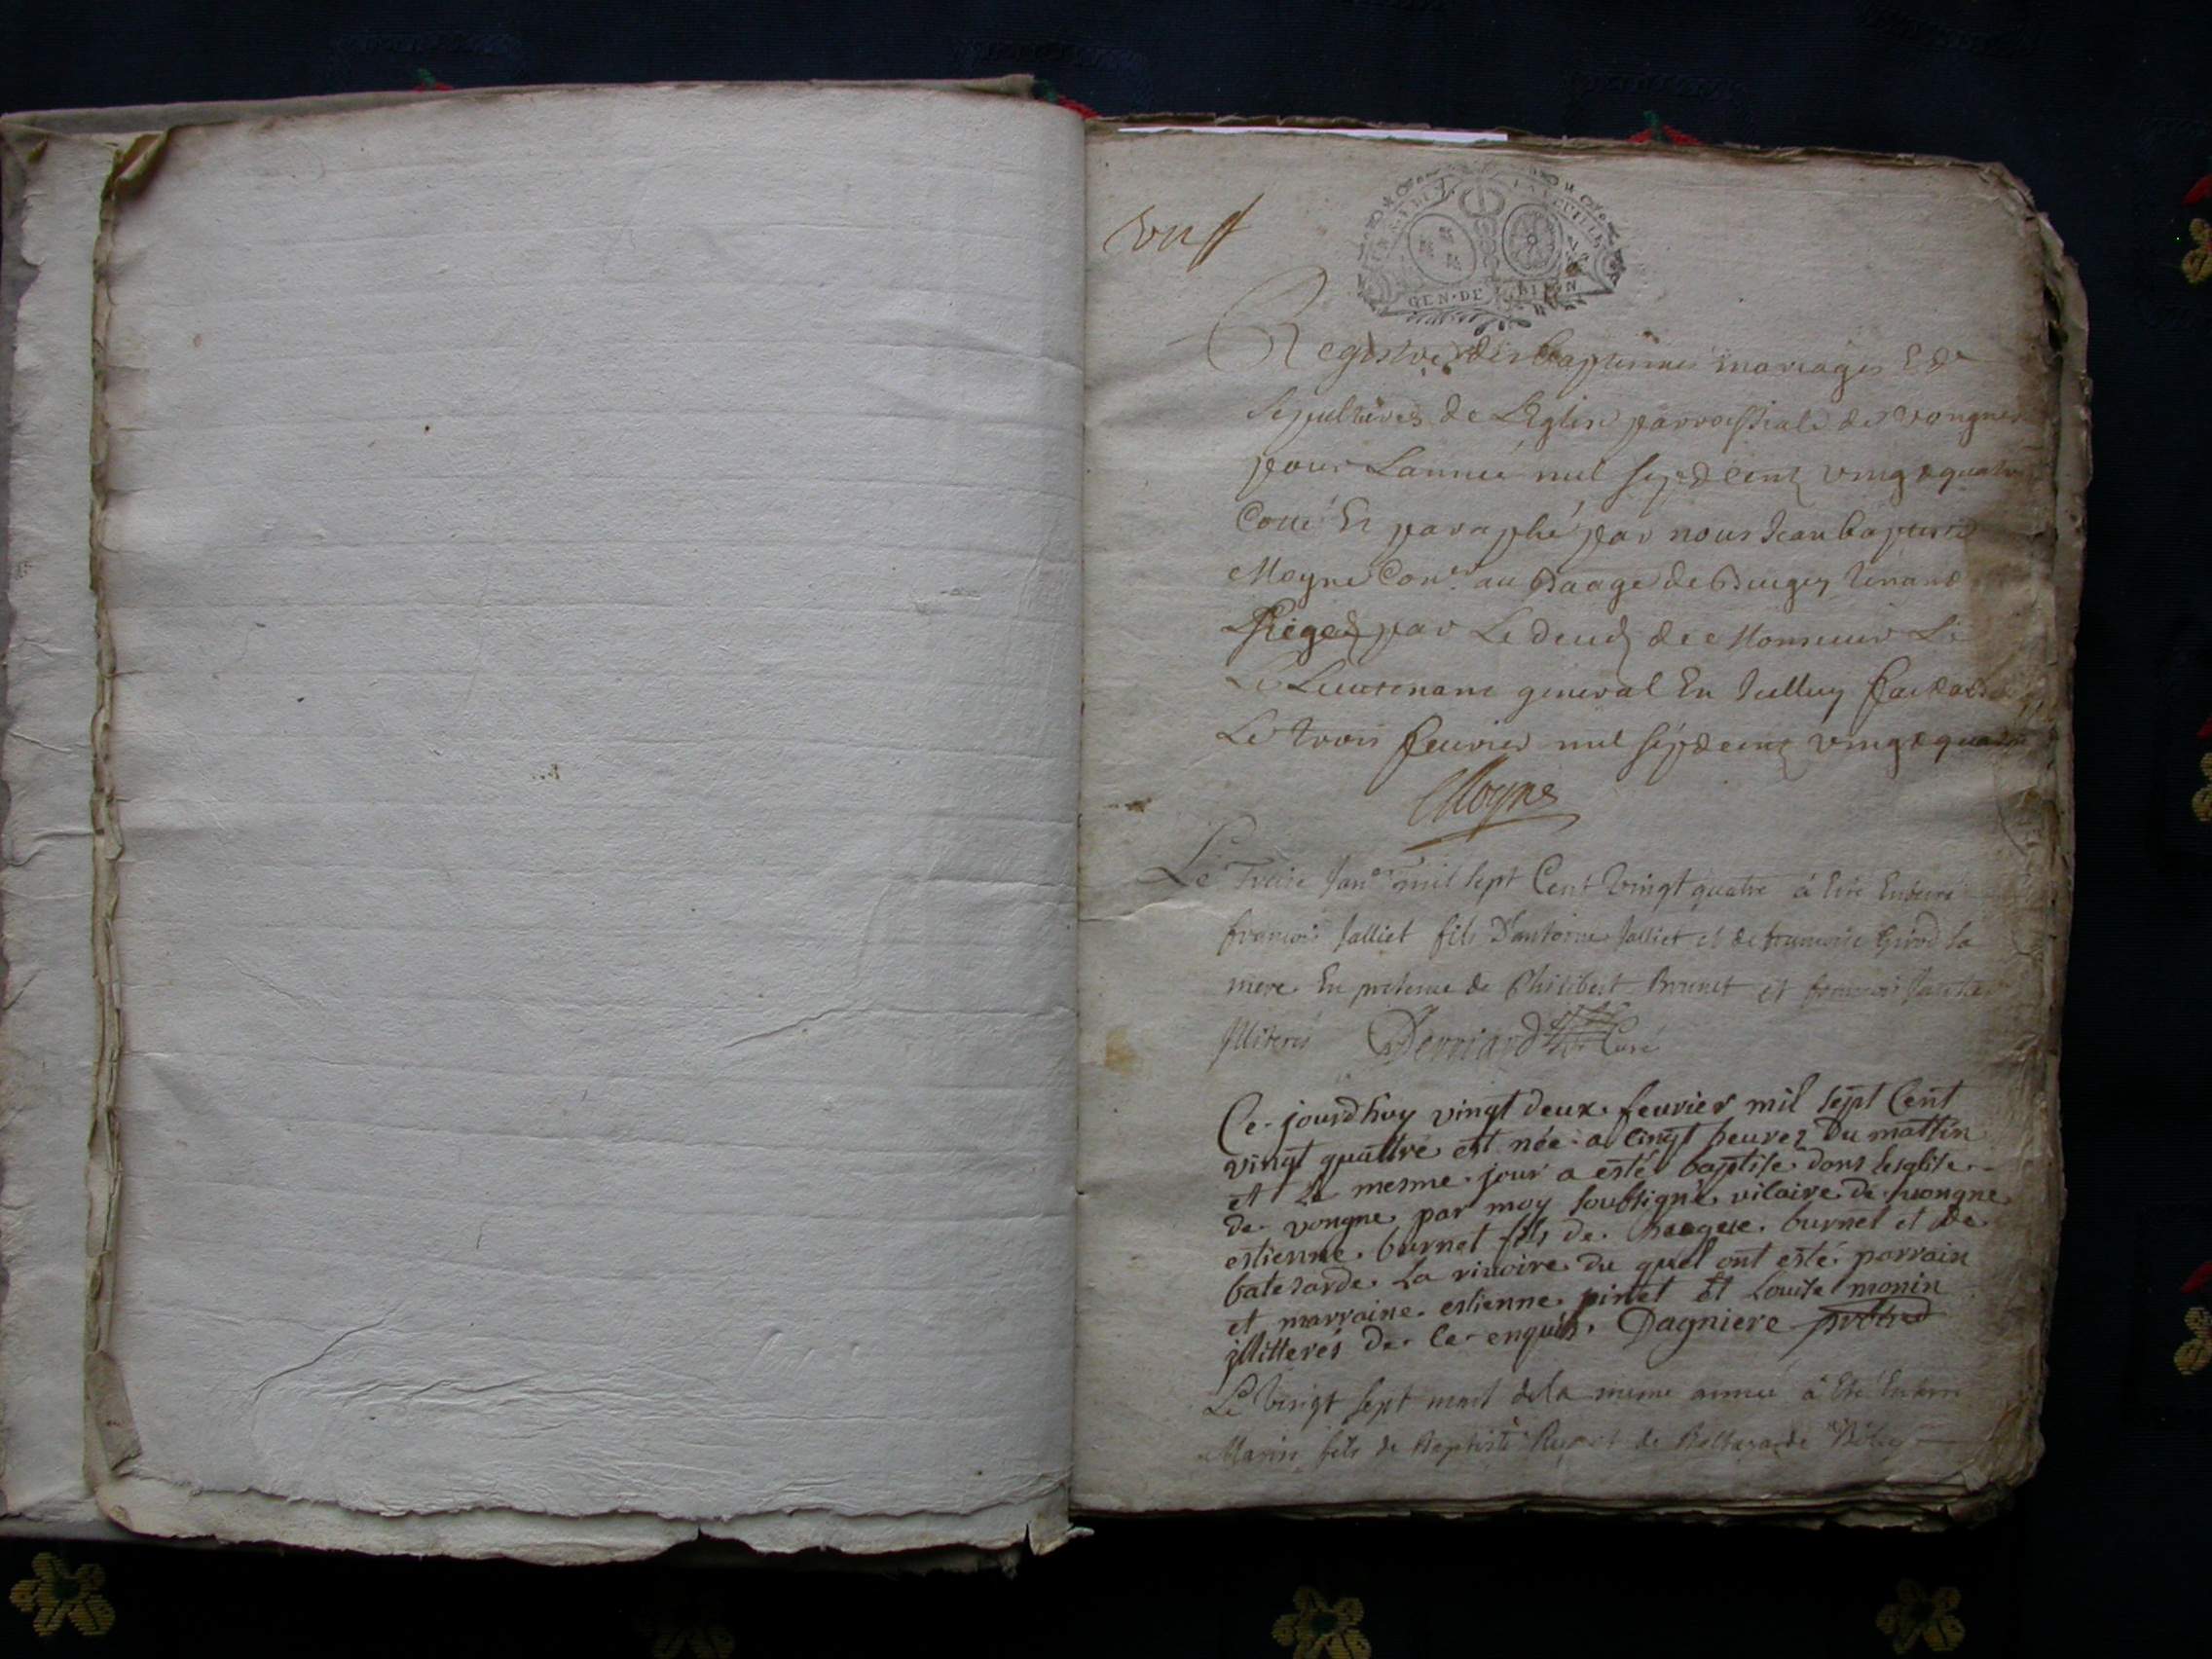 GEN. DE DIJON
Registre des baptemes mariages Et de
sepultures de Leglise parroissiale de vongnes
pour Lannee mil sept cent vingt quatre
Cotté Et paraphé par nous Jean baptiste
Moyne Coner au Baage de Bugey tenant
Le siege par Le deceds de Monsieur Le
Le Lieutenant general En Belley fait a
Le trois feuvrier mil sept cent vingt quatre
Moyne
Le Treize Janer mil sept Cent vingt quatre à Eté Enterré
francois Jalliet fils D'antoine Jalliet et de francoise Girod sa
mere En presence de Philibert Brunet et francois
Illiterés Curé
Ce jourdhuy vingt deux feuvrier mil sept Cent
vingt quattre est née a cinqt heures du mattin
et le mesme jour a esté baptisé dans lesglise
de vongne par moy soubsigné vicaire de vuongne
estienne burnet fils de burnet et de
batesarde La rivoire du quel ont esté parrain
et marraine estienne pinet Et Louise monin
jllitterés de ce enquis. Dagniere
Le vingt sept mars de la meme année à Eté Enterré
Marin fils de Baptiste et de Baltazarde